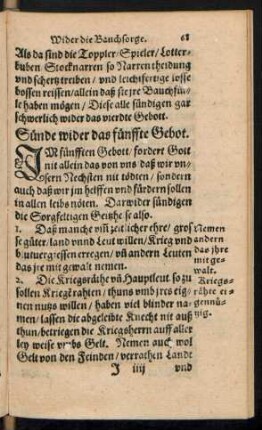 Wider die Bauchsorge. 68
Als da sind die Toppler/Spieler/Lotter-
buben Stocknarren so Narrentheidung
vnd schertz treiben/vnd leichtfertige
bossen reissen/allein daß sie jre Bauchfül-
le haben mögen/Diese alle sündigen gar
schwerlich wider das vierdte Gebott.
Sünde wider das fünffte Gebot.
IM fünfften Gebott/fordert Gott
nit allein das von vns daß wir vn-
sern Nechsten nit tödten/sondern
auch daß wir jm helffen vnd fürdern sollen
in allen leibs nöten. Darwider sündigen
die Sorgfeltigen Geitzhe se also.
1. Daß manche vm̃ zeitlicher ehre/gros
se güter/land vnnd Leut willen/Krieg vnd
blutuergiessen erregen/vn̄ andern Leuten
das jre mit gewalt nemen.
Nemen
andern
das jhre
mit ge-
walt.
2. Die Kriegsräthe vn̄ Hauptleut so zu
sollen Kriegk rahten/thuns vmb jres eig-
nen nutz willen/haben viel blinder na-
men/lassen die abgeleibte Knecht nit auß
thun/betriegen die Kriegsherrn auff aller
ley weise vmbs Gelt. Nemen auch wol
Gelt von den Feinden/verrathen Landt
Kriegs-
räthe ei-
gennü-
zig.
J iiij vnd